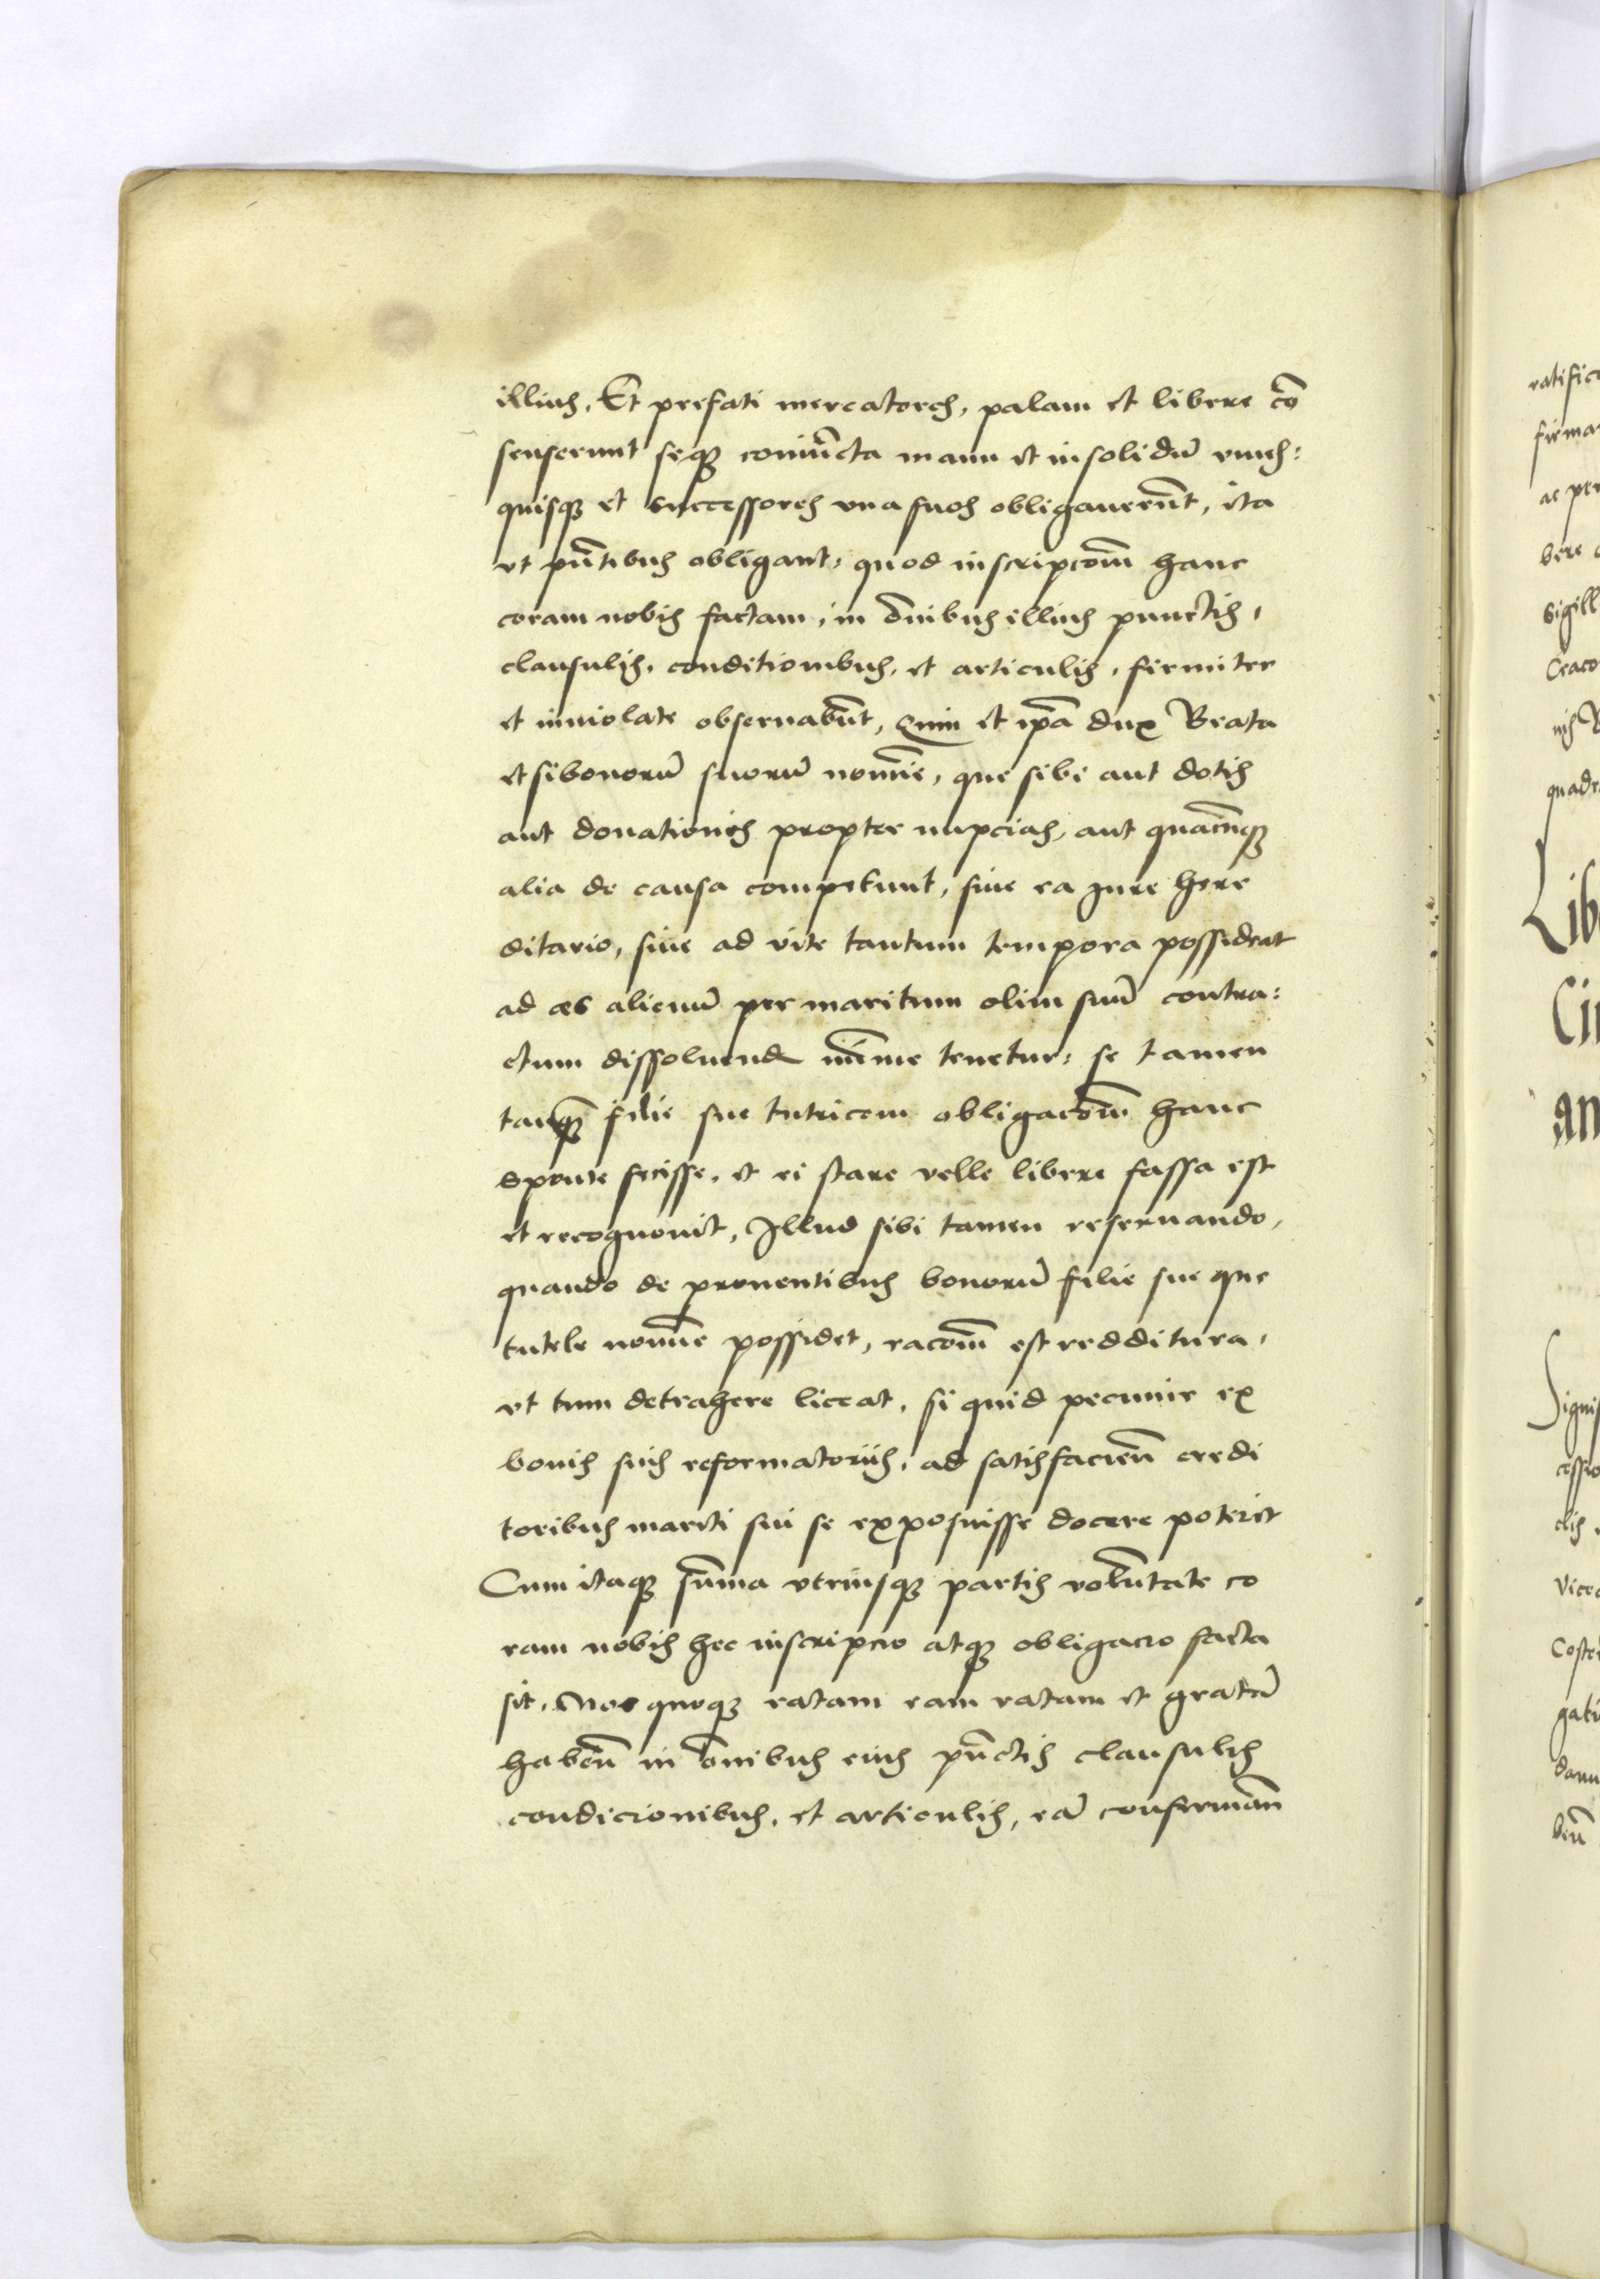 illius, Et prefati mercatores, palam et libere cō
senserunt seq̃ coniūcta manu et insolidū vnus:
quisq̃ et successores vna suos obligauerūt, ita
vt pn̄tibus obligant, quod inscripcoēm hanc
coram nobis factam, in oīnibus illius punctis,
clausulis, conditionibus, et articulis, firmiter
et inuiolate obseruabūt, Quin et ip̄a dux Beata
etsi bonorū suorū nomīe, que sibi aut dotis
aut donationis propter nupcias, aut quacūq̃
alia de causa competunt, siue ea iure here
ditario, siue ad vite tantum tempora possideat
ad æs alienū per maritum olim suū contra:
ctum dissoluend mīnime tenetur, se tamen
tanq̃ filie sue tutricem obligacoēm hanc
sponte fecisse, et ei stare velle libere fassa est
et recognouit, Illud sibi tamen reseruando,
quando de prouentibus bonorū filie sue que
tutele nomīe possidet, racoēm est redditura,
vt tum detrahere liceat, si quid pecunie ex
bonis suis reformatoriis, ad satisfacieñ credi
toribus mariti sui se exposuisse docere poterit
Cum itaq̃ sūma vtriusq̃ partis volūntate co
ram nobis hec inscripcio atq̃ obligacio facta
sit, Nos quoq̃ ratam eam ratam et gratā
habeñ in oīnibus eius pūctis clausulis
condicionibus, et articulis, eā confirmañ
ratific
firma
ac per
bere
Sigill
Craco
nis
quadr
Lib
Ci
an
Signif
cessio
clis
Vice
Coste
gati
danu
beñ